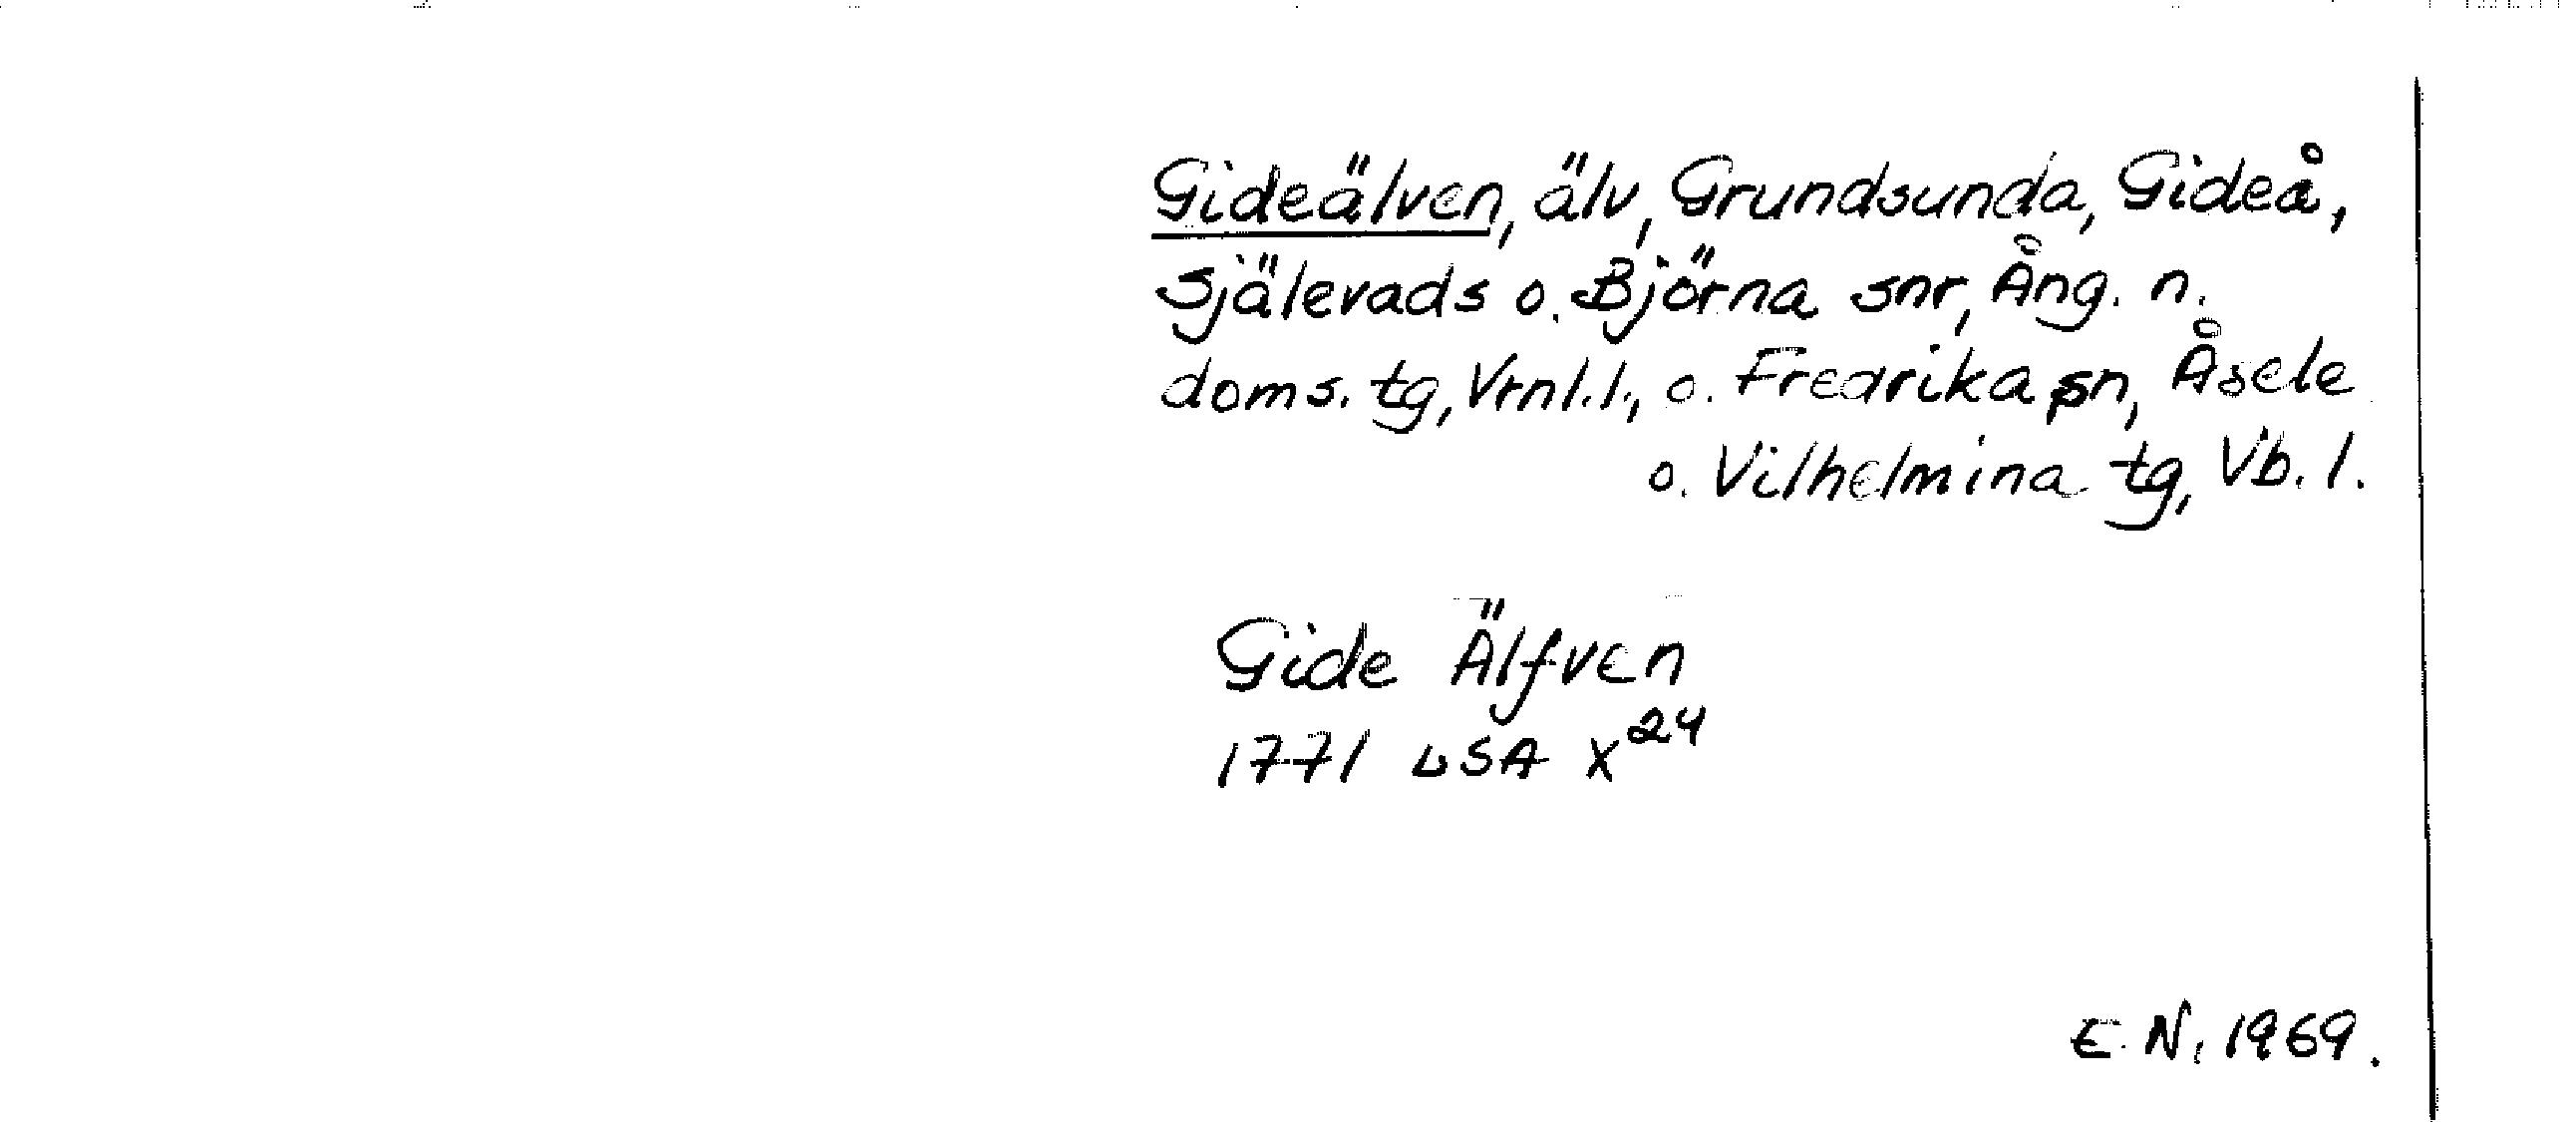 Gideälven, älv, Grundsunda, Gideå,
Själevads o. Björna snr, Ång. n.
doms. tg, Vrnl. l., o. Fredrika sn, Åsele
o. Vilhelmina tg, Vb. l.
Gide Älfven
1771 LSA X²⁴
E. N. 1969.